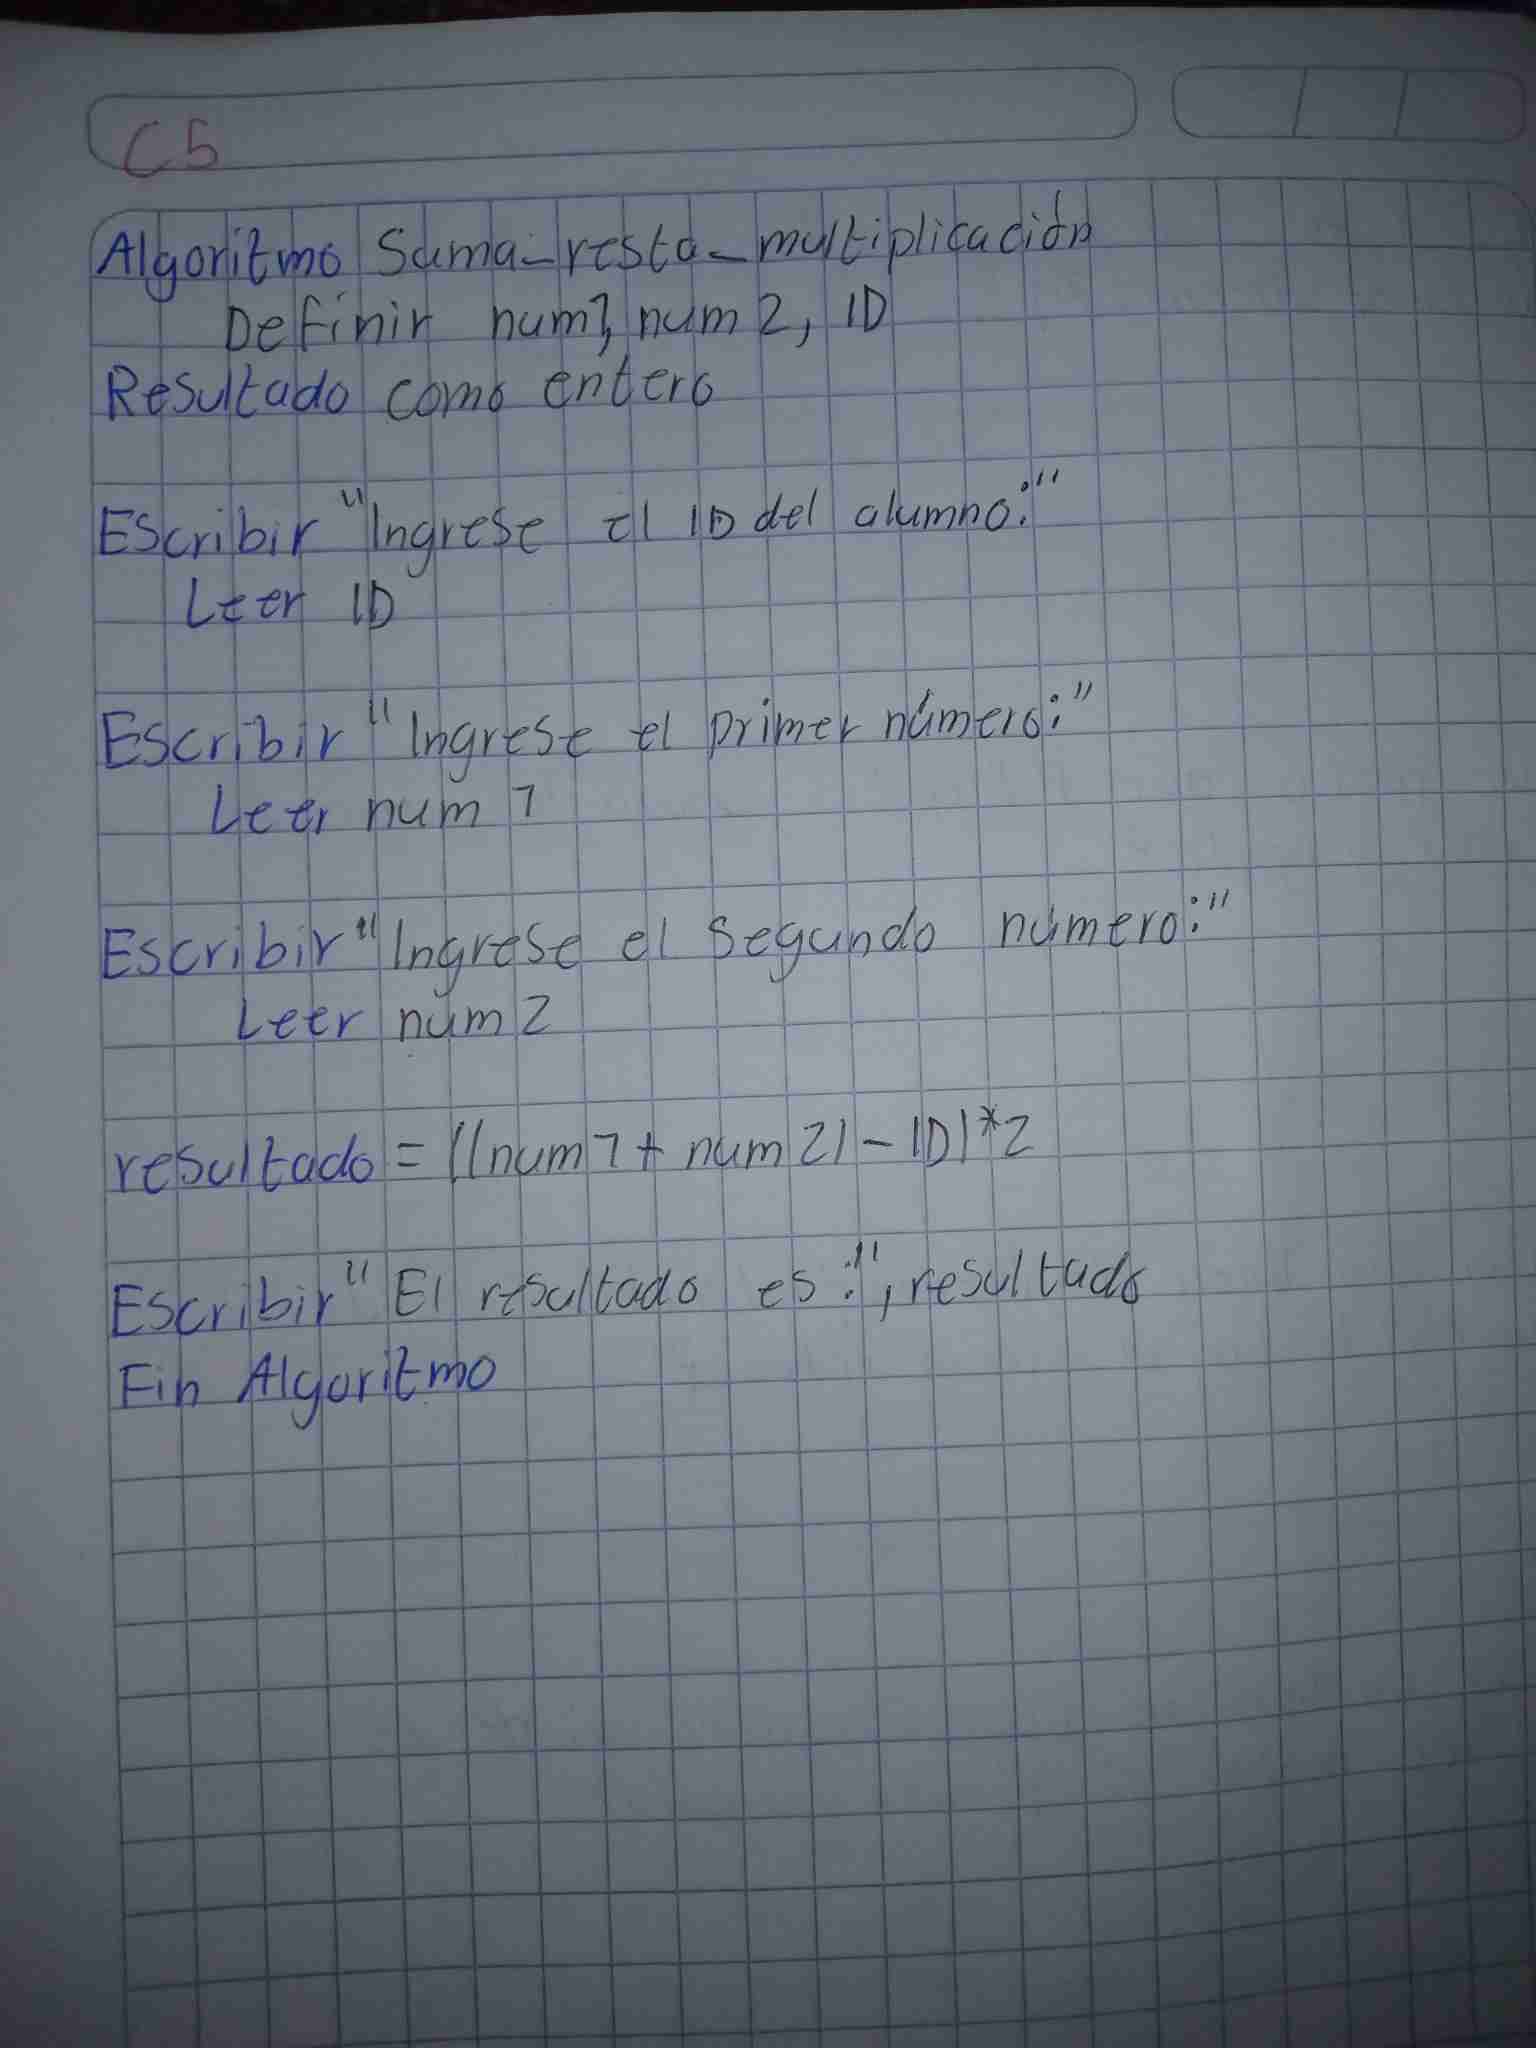 C5
Algoritmo Suma_resta_multiplicación
Definir num1, num2, ID
Resultado como entero
Escribir "Ingrese el ID del alumno:"
Leer ID
Escribir "Ingrese el primer número:"
Leer num 1
Escribir "Ingrese el segundo número:"
Leer num 2
resultado = ((num 1 + num 2) - ID) * 2
Escribir "El resultado es:", resultado
Fin Algoritmo